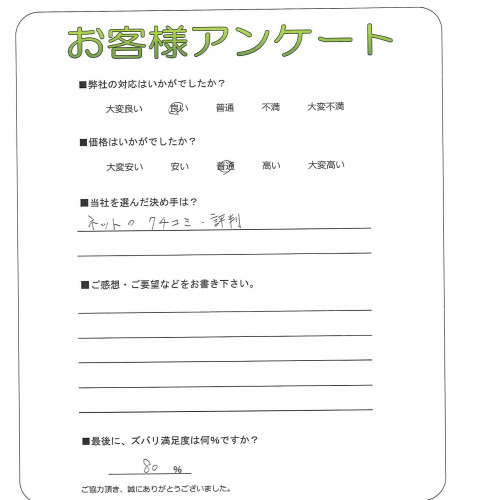 お客様アンケート
■弊社の対応はいかがでしたか？
大変良い 良い 普通 不満 大変不満
■価格はいかがでしたか？
大変安い 安い 普通 高い 大変高い
■当社を選んだ決め手は？
ネットの クチコミ・評判
■ご感想・ご要望などをお書き下さい。
■最後に、ズバリ満足度は何%ですか？
80 %
ご協力頂き、誠にありがとうございました。